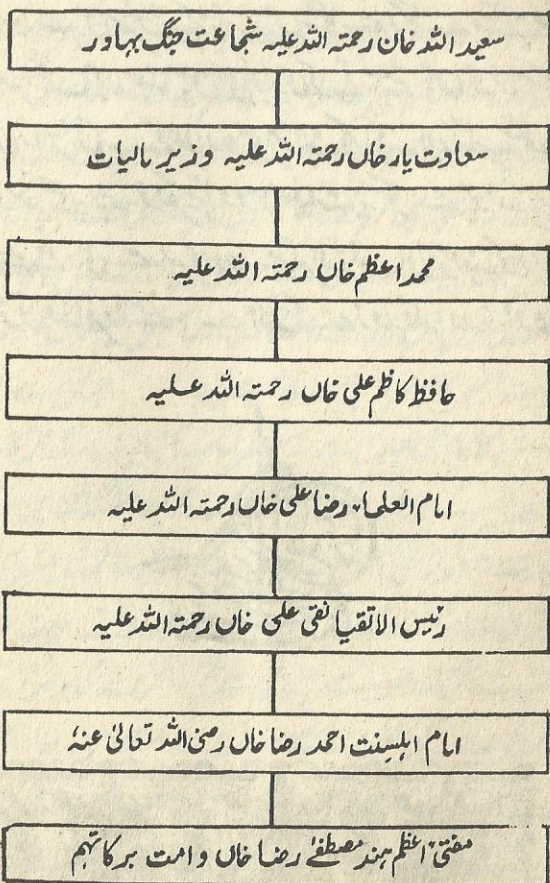 سعید اللہ خان رحمتہ اللہ علیہ شجاعت جنگ بہادر
سعادت یار خاں رحمتہ اللہ علیہ وزیر مالیات
محمد اعظم خاں رحمتہ اللہ علیہ
حافظ کاظم علی خاں رحمتہ اللہ علیہ
امام العلماء رضا علی خاں رحمتہ اللہ علیہ
رئیس الاتقیا نقی علی خاں رحمتہ اللہ علیہ
امام اہلسنت احمد رضا خاں رضی اللہ تعالیٰ عنہٗ
مفتئ اعظم ہند مصطفےٰ رضا خاں دامت برکاتہم